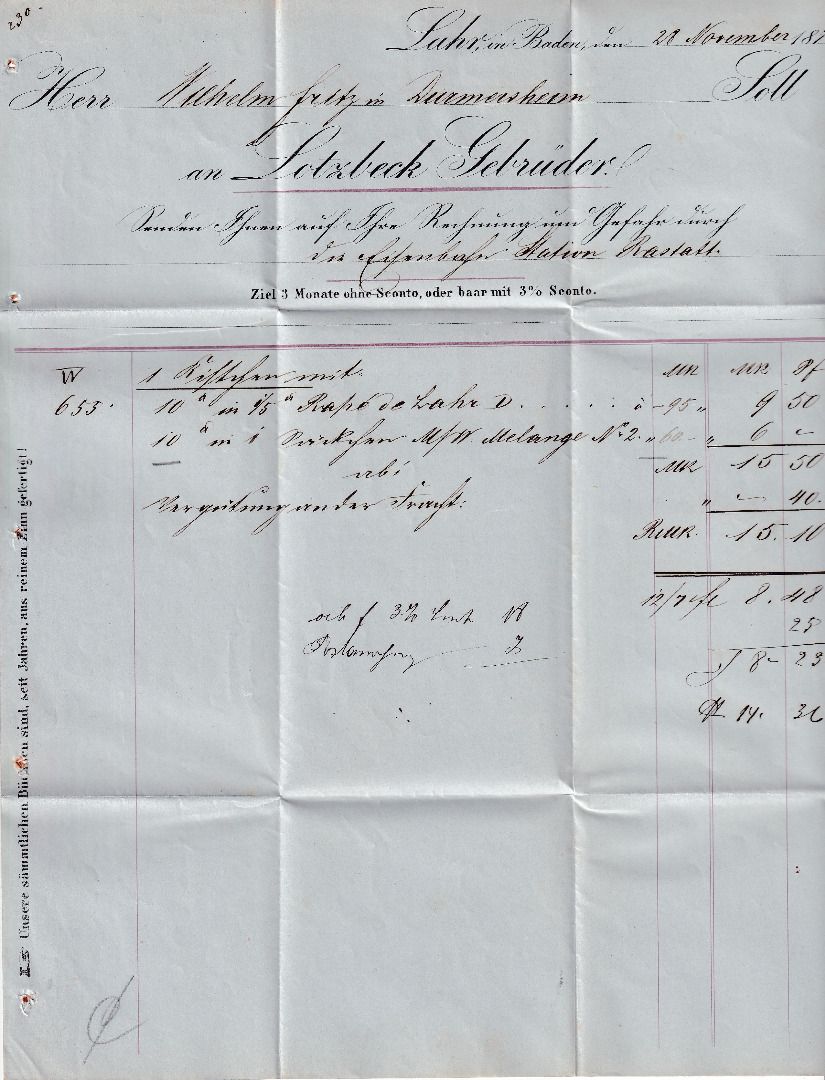 230.
Lahr, in Baden, den 20 November 187
Herr Wilhelm Fritz in Durmersheim Soll
an Lotzbeck Gebrüder.
Senden Ihnen auf Ihre Rechnung und Gefahr durch
die Eisenbahn Station Rastatt.
Ziel 3 Monate ohne Sconto, oder baar mit 3% Sconto.
W 1 Kistchen mit MK MK Pf
653. 10 in 1/5 Rapé de Lahr D. à 95 " 9 50
10 in 1 Säckchen M/W Melange No 2. " 60.- " 6 -
MK 15 50
ab:
Vergütung an der Fracht. " - 40.
RMK. 15. 10
12/7 8. 48
ab 3% 18
25
7
8 - 23
14. 31
Unsere sämmtlichen Büchsen sind, seit Jahren, aus reinem Zinn gefertigt!